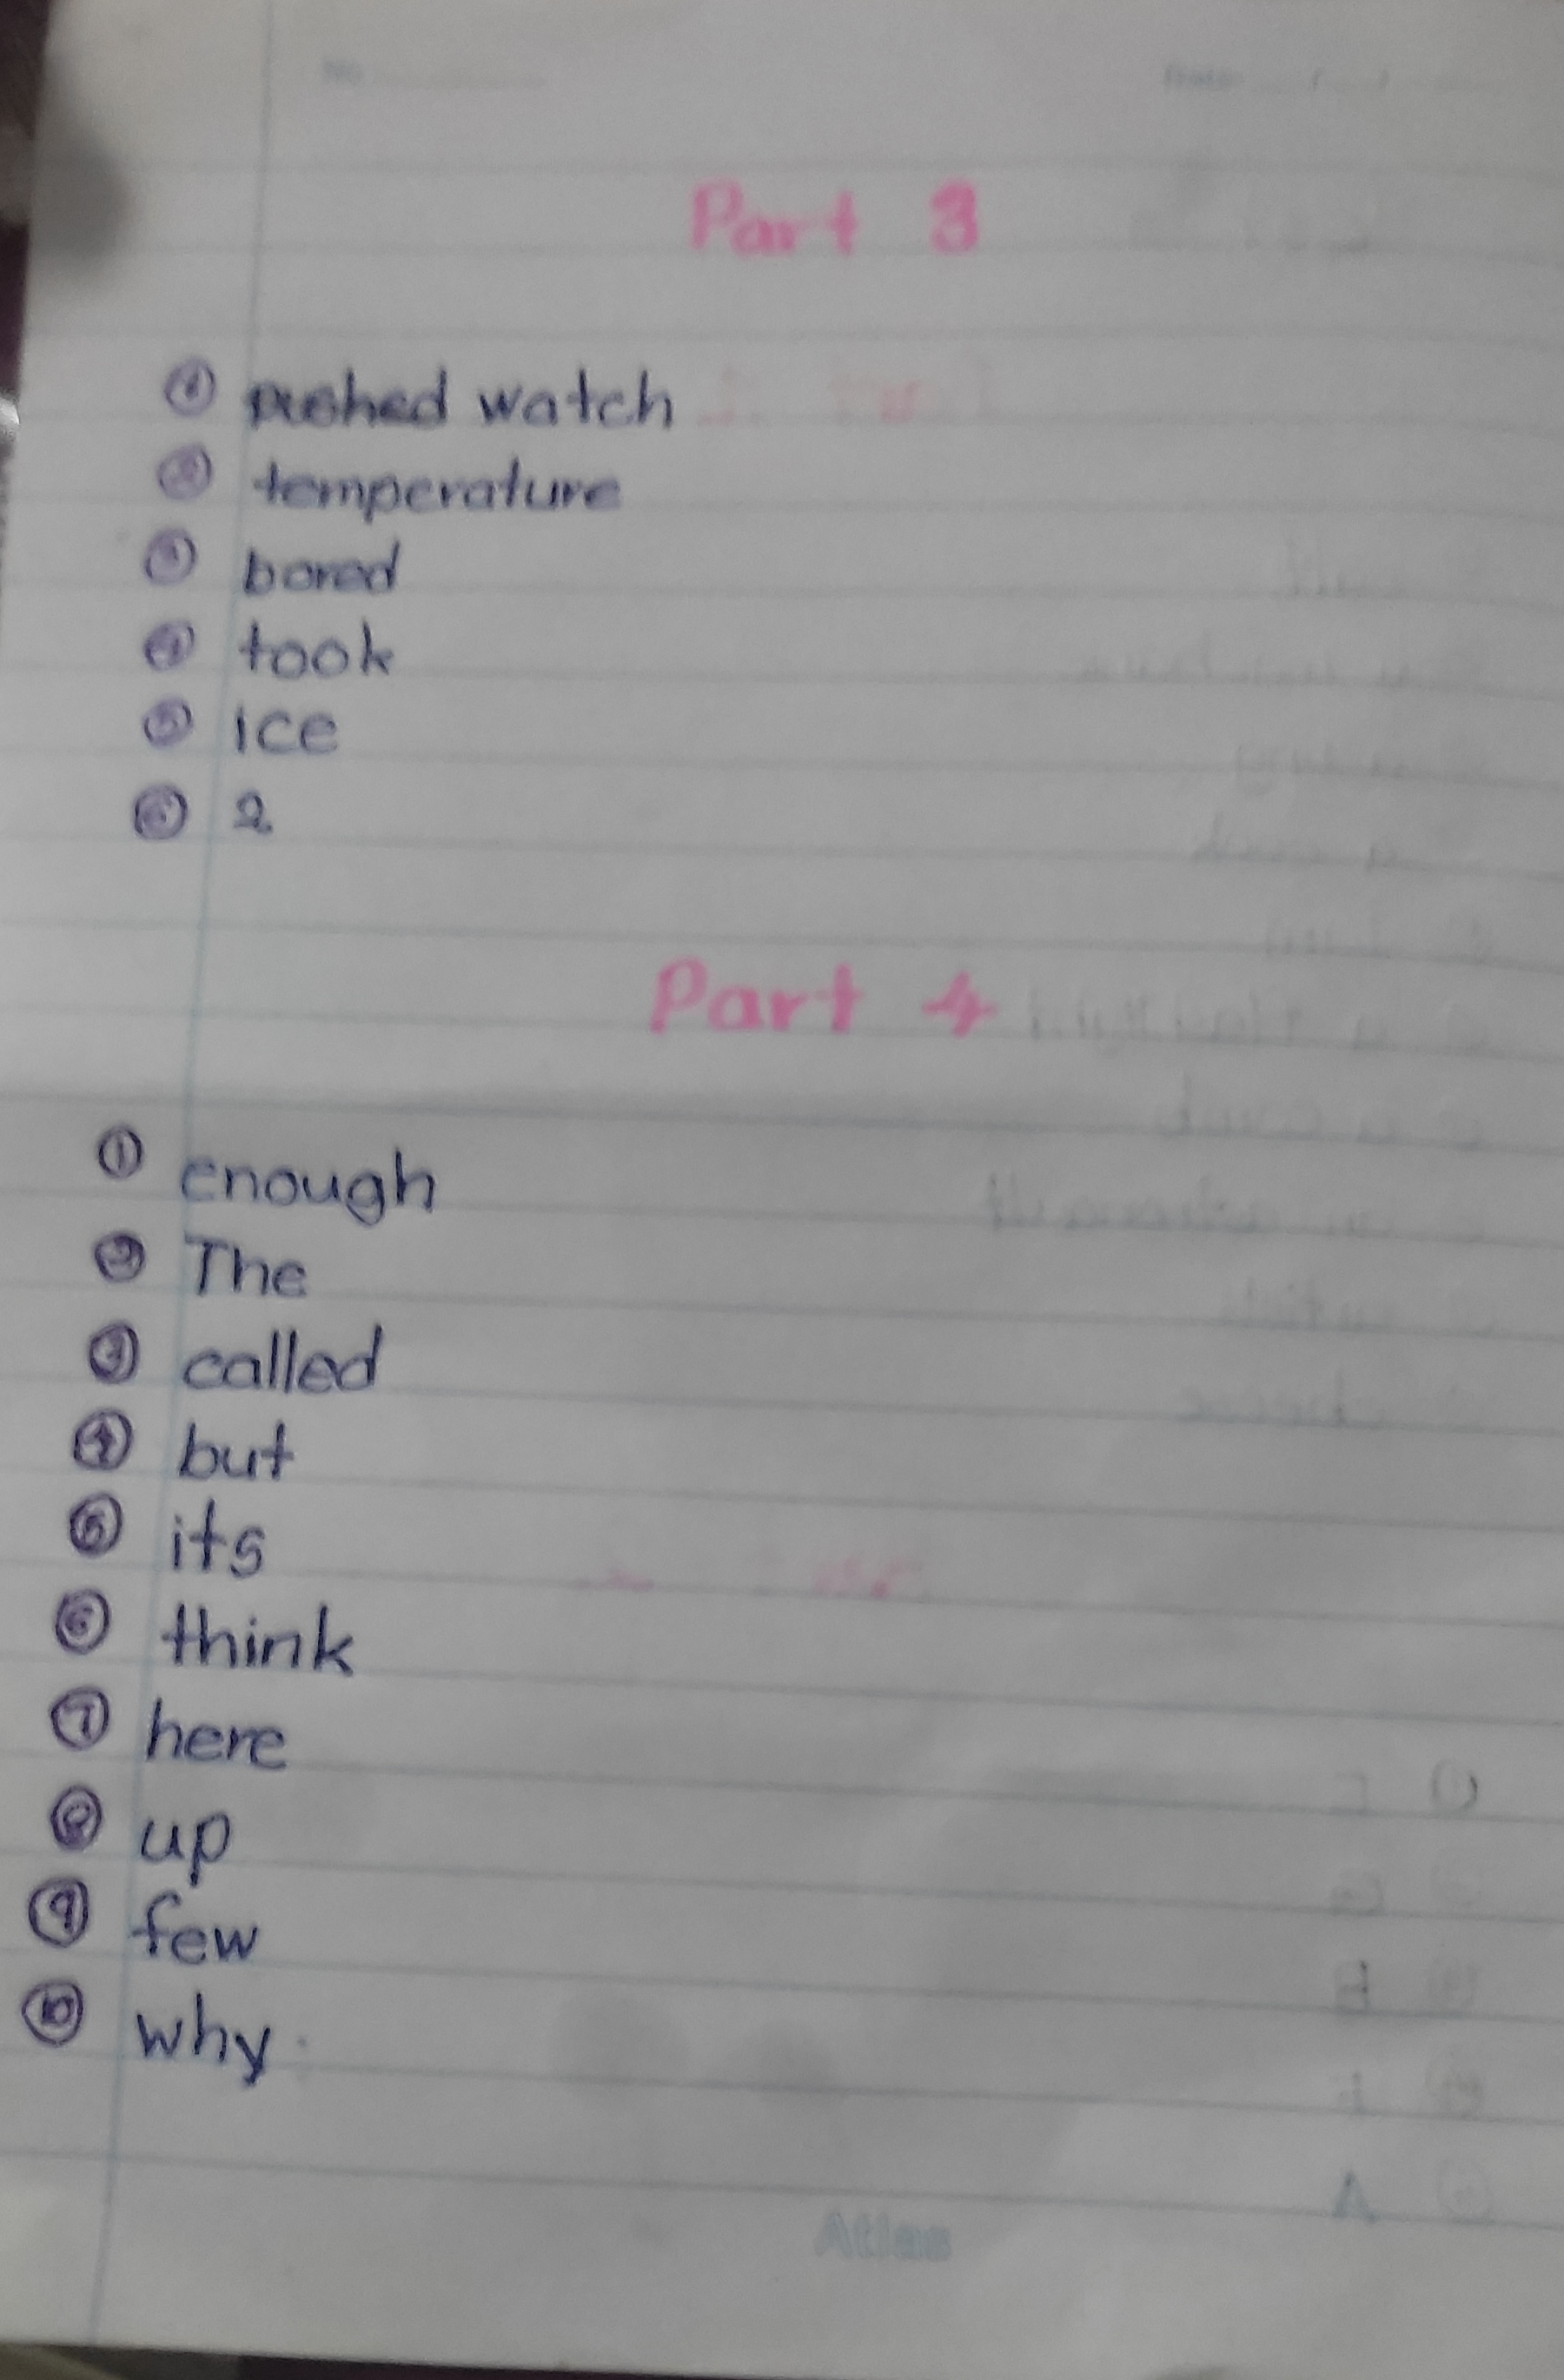 No
Date
Part 3
① pushed watch
② temperature
③ bored
④ took
⑤ ice
⑥ 2
Part 4
① enough
② The
③ called
④ but
⑤ its
⑥ think
⑦ here
⑧ up
⑨ few
⑩ why
Atlas